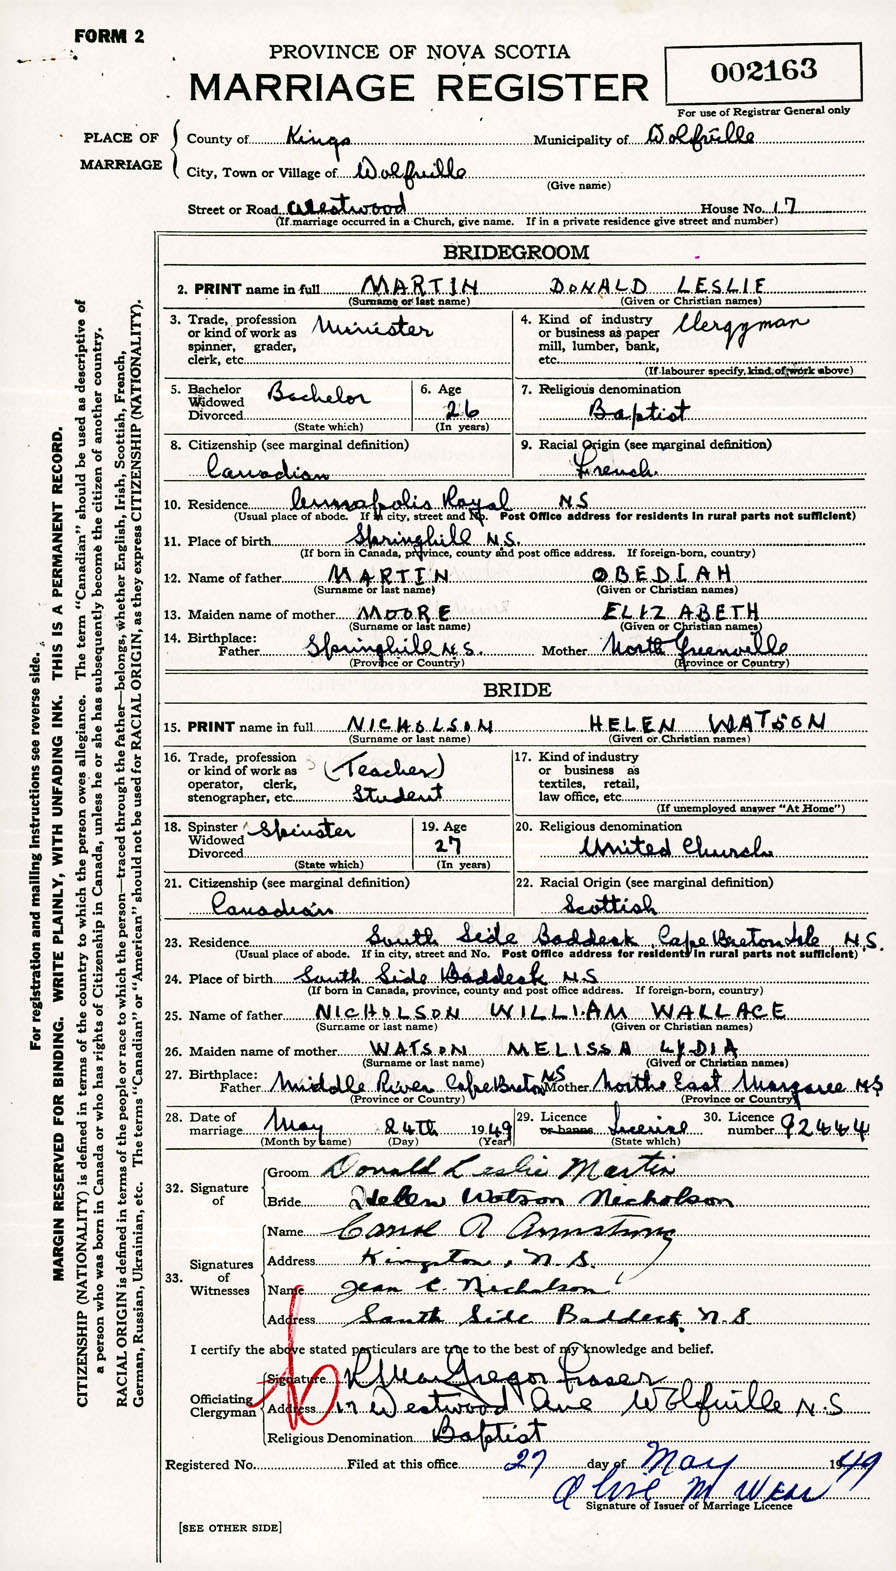 FORM 2
PROVINCE OF NOVA SCOTIA
MARRIAGE REGISTER
002163
For use of Registrar General only
PLACE OF MARRIAGE
County of Kings Municipality of Wolfville
City, Town or Village of Wolfville
(Give name)
Street or Road Westwood House No. 17
(If marriage occurred in a Church, give name. If in a private residence give street and number)
BRIDEGROOM
2. PRINT name in full MARTIN DONALD LESLIE
(Surname or last name) (Given or Christian names)
3. Trade, profession or kind of work as spinner, grader, clerk, etc. Minister
4. Kind of industry or business as paper mill, lumber, bank, etc. Clergyman
(If labourer specify, kind of work above)
5. Bachelor Widowed Divorced Bachelor
(State which)
6. Age 26
(In years)
7. Religious denomination
Baptist
8. Citizenship (see marginal definition)
Canadian
9. Racial Origin (see marginal definition)
French
10. Residence Annapolis Royal NS
(Usual place of abode. If in city, street and No. Post Office address for residents in rural parts not sufficient)
11. Place of birth Springhill N.S.
(If born in Canada, province, county and post office address. If foreign-born, country)
12. Name of father MARTIN OBEDIAH
(Surname or last name) (Given or Christian names)
13. Maiden name of mother MOORE ELIZABETH
(Surname or last name) (Given or Christian names)
14. Birthplace: Father Springhill N.S. Mother North Greenville
(Province or Country) (Province or Country)
BRIDE
15. PRINT name in full NICHOLSON HELEN WATSON
(Surname or last name) (Given or Christian names)
16. Trade, profession or kind of work as operator, clerk, stenographer, etc. (Teacher) Student
17. Kind of industry or business as textiles, retail, law office, etc.
(If unemployed answer "At Home")
18. Spinster Widowed Divorced Spinster
(State which)
19. Age 27
(In years)
20. Religious denomination
United Church
21. Citizenship (see marginal definition)
Canadian
22. Racial Origin (see marginal definition)
Scottish
23. Residence South Side Baddeck, Cape Breton Isle N.S.
(Usual place of abode. If in city, street and No. Post Office address for residents in rural parts not sufficient)
24. Place of birth South Side Baddeck N S
(If born in Canada, province, county and post office address. If foreign-born, country)
25. Name of father NICHOLSON WILLIAM WALLACE
(Surname or last name) (Given or Christian names)
26. Maiden name of mother WATSON MELISSA LYDIA
(Surname or last name) (Given or Christian names)
27. Birthplace: Father Middle River Cape Breton NS Mother North East Margaree NS
(Province or Country) (Province or Country)
28. Date of marriage May 24th 1949
(Month by name) (Day) (Year)
29. Licence or banns License
(State which)
30. Licence number 92444
32. Signature of
Groom Donald Leslie Martin
Bride Helen Watson Nicholson
33. Signatures of Witnesses
Name Carol A Armstrong
Address Kingston, N.S.
Name Jean C. Nicholson
Address South Side Baddeck, N.S
I certify the above stated particulars are true to the best of my knowledge and belief.
Officiating Clergyman
Signature MacGregor Fraser
Address 17 Westwood Ave Wolfville N.S
Religious Denomination Baptist
Registered No. Filed at this office 27 day of May 1949
Olive M Weir
Signature of Issuer of Marriage Licence
[SEE OTHER SIDE]
For registration and mailing instructions see reverse side.
MARGIN RESERVED FOR BINDING. WRITE PLAINLY, WITH UNFADING INK. THIS IS A PERMANENT RECORD.
CITIZENSHIP (NATIONALITY) is defined in terms of the country to which the person owes allegiance. The term "Canadian" should be used as descriptive of
a person who was born in Canada or who has rights of Citizenship in Canada, unless he or she has subsequently become the citizen of another country.
RACIAL ORIGIN is defined in terms of the people or race to which the person—traced through the father—belongs, whether English, Irish, Scottish, French,
German, Russian, Ukrainian, etc. The terms "Canadian" or "American" should not be used for RACIAL ORIGIN, as they express CITIZENSHIP (NATIONALITY).